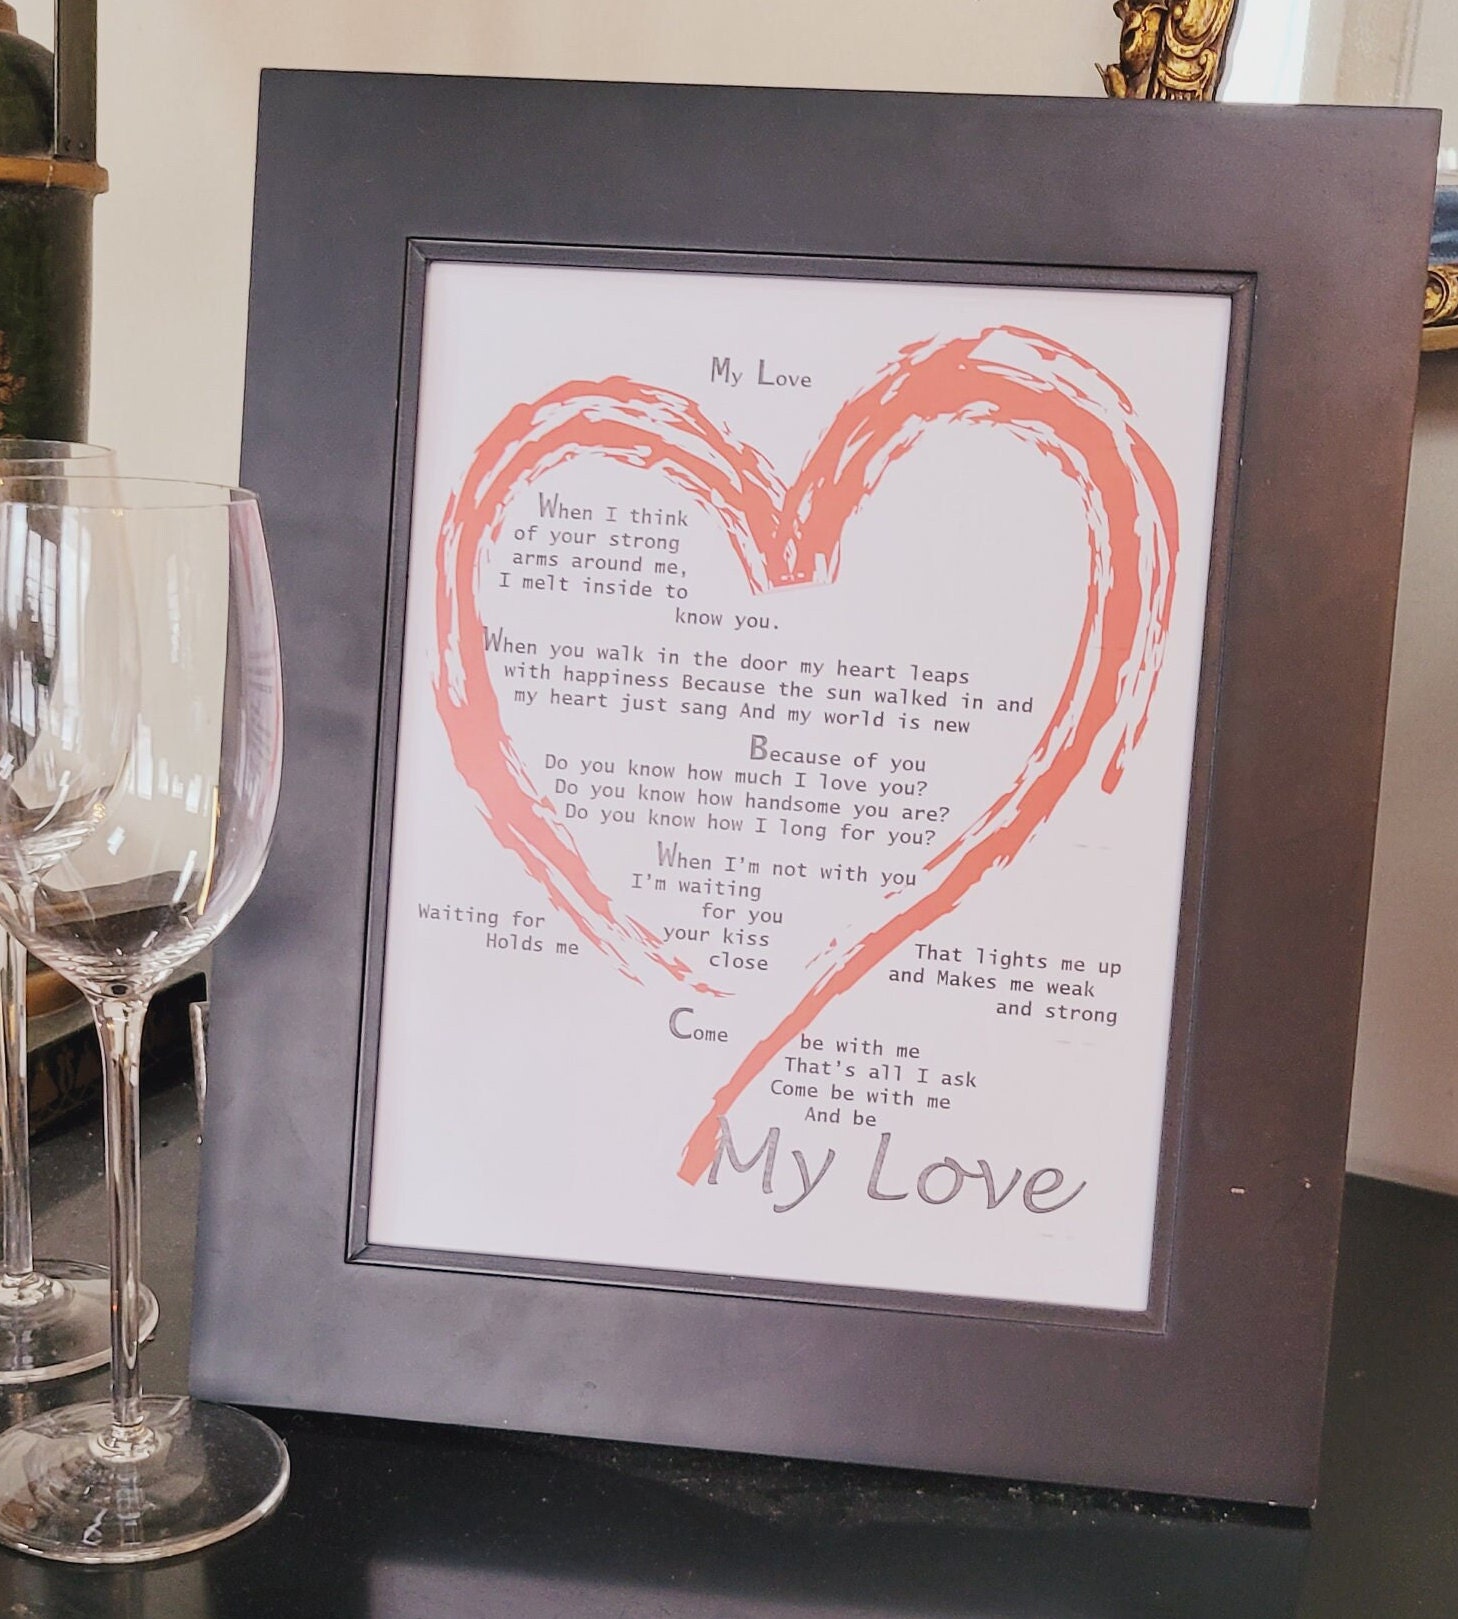 My Love
When I think
of your strong
arms around me,
I melt inside to
know you.
When you walk in the door my heart leaps
with happiness Because the sun walked in and
my heart just sang And my world is new
Because of you
Do you know how much I love you?
Do you know how handsome you are?
Do you know how I long for you?
When I'm not with you
I'm waiting
for you
Waiting for your kiss That lights me up
Holds me close and Makes me weak
and strong
Come be with me
That's all I ask
Come be with me
And be
My Love